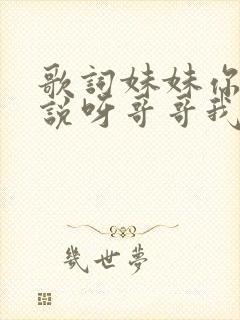 歌詞妹妹你
說呀哥哥我
幾世夢